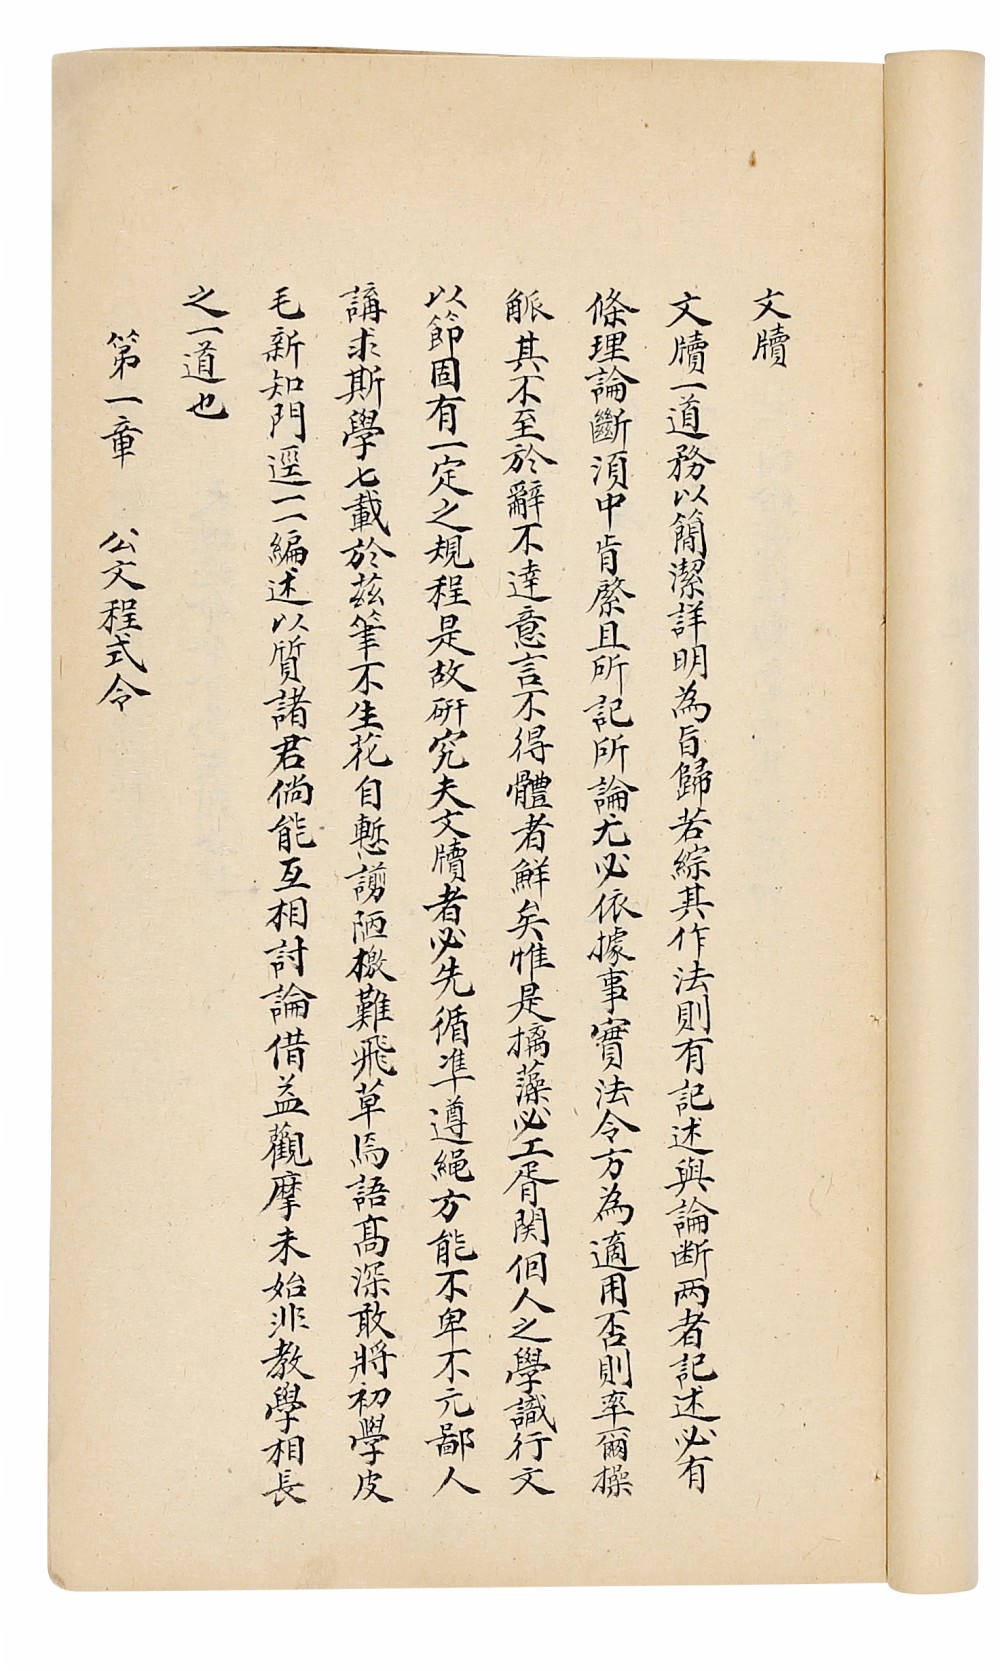 文牘
文牘一道務以簡潔詳明為旨歸若綜其作法則有記述與論断两者記述必有
條理論斷須中肯綮且所記所論尤必依據事實法令方為適用否則率爾操
觚其不至於辭不達意言不得體者鮮矣惟是摛藻必工胥関佪人之學識行文
以節固有一定之規程是故研究夫文牘者必先循準遵繩方能不卑不亢鄙人
講求斯學七載於兹筆不生花自慙謭陋檄難飛草焉語高深敢將初學皮
毛新知門逕一一編述以質諸君倘能互相討論借益觀摩未始非教學相長
之一道也
第一章 公文程式令